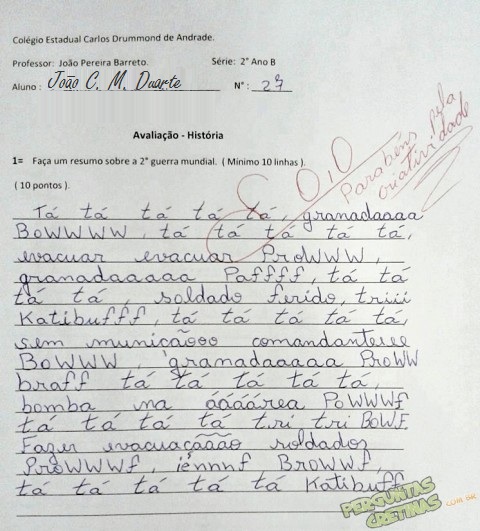 Colégio Estadual Carlos Drummond de Andrade.
Professor: João Pereira Barreto. Série: 2° Ano B
Aluno : João C. M. Duarte N° : 27
Avaliação - História
1= Faça um resumo sobre a 2° guerra mundial. ( Mínimo 10 linhas ).
( 10 pontos ).
0,0
Parabéns pela
criatividade
Tá tá tá tá tá, granadaaaa
BOWWWW, tá tá tá tá tá,
evacuar evacuar PROWWW,
granadaaaaa Paffff, tá tá
tá tá, soldado ferido, triii
Katibufff, tá tá tá tá tá,
sem muniçãooo comandanteeee
BOWWW granadaaaaa PROWW
braff tá tá tá tá tá,
bomba na áááárea POWWWf
tá tá tá tá tri tri BOWF
Fazer evacuaçãããão soldados
PROWWWf, iénnnf BROWWf,
tá tá tá tá tá Katibuff
PERGUNTAS
CRETINAS.COM.BR